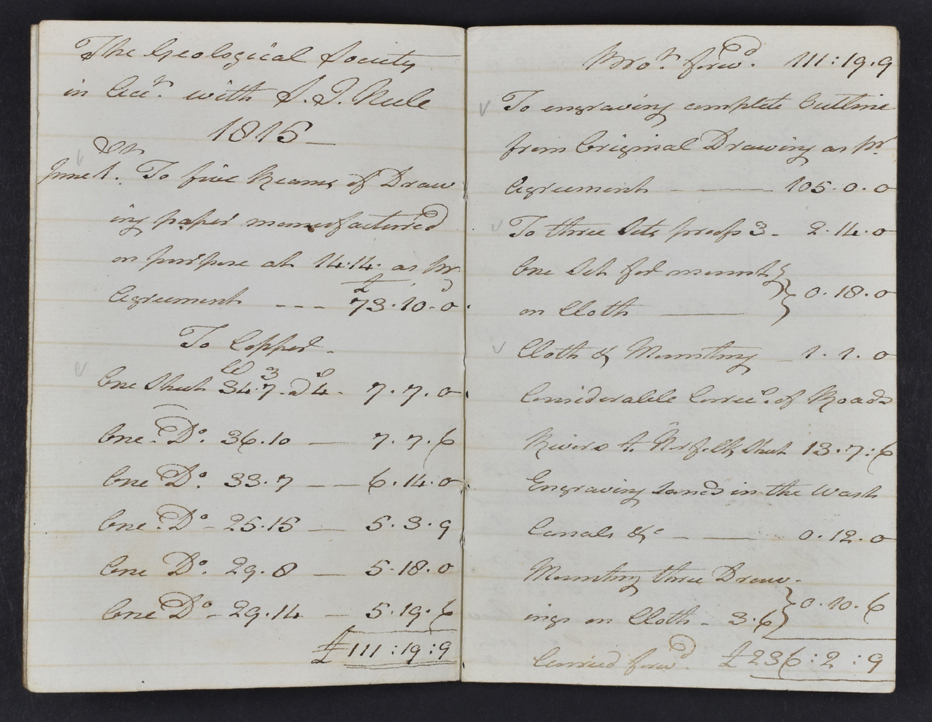 The Geological Society
in Acct. with J. J. Neele
1815
June 1. To five Reams of Draw
ing paper manufactured
on purpose at 14:14: as pr.
£
Agreement - - - 73.10.0
To Copper.
One Sheet 34.7 7.7.0
One Do. 36.10 — 7.7.6
One Do. 33.7 — 6.14.0
One Do. 25.15 — 5.3.9
One Do. 29.8 — 5.18.0
One Do. 29.14 — 5.19.6
£111:19:9
Brot. forwd. 111:19.9
To engraving complete Outline
from Original Drawing as pr.
Agreement — 105.0.0
To three Sets proofs 3. 2.14.0
One Set for mountg
on Cloth — 0.18.0
Cloth & Mounting 1.1.0
Considerable Correcs. of Roads
Rivers &c. Norfolk Sheet 13.7:6
Engraving Sands in the Wash
Canals &c — 0.12.0
Mounting three Draw-
ings on Cloth - 3.6 0.10.6
Carried forwd. £236:2:9